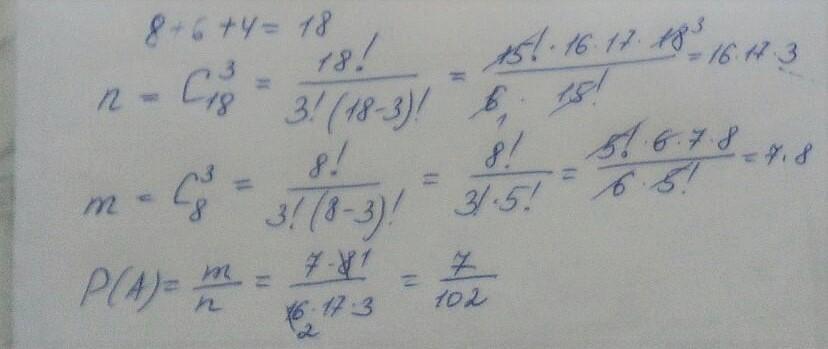 8+6+4=18
n = C₁₈³ = 18! / 3!(18-3)! = 15!·16·17·18 3 / 6 1 · 15! = 16·17·3
m = C₈³ = 8! / 3!(8-3)! = 8! / 3!·5! = 5!·6·7·8 / 6·5! = 7·8
P(A) = m / n = 7·8 1 / 16 2 ·17·3 = 7 / 102